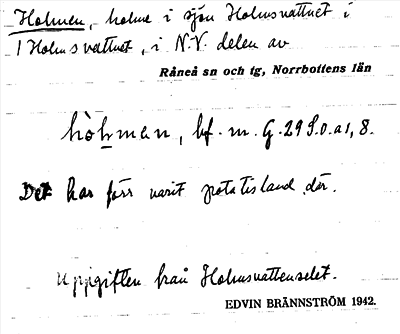 Holmen, holme i sjön Holmsvattnet i
/ Holmsvattnet, i N.V. delen av
Råneå sn och tg, Norrbottens län
hòhman, bf. m. G. 29 S.o.a1, 8.
Det har förr varit potatisland där.
Uppgiften från Holmsvattenselet.
EDVIN BRÄNNSTRÖM 1942.